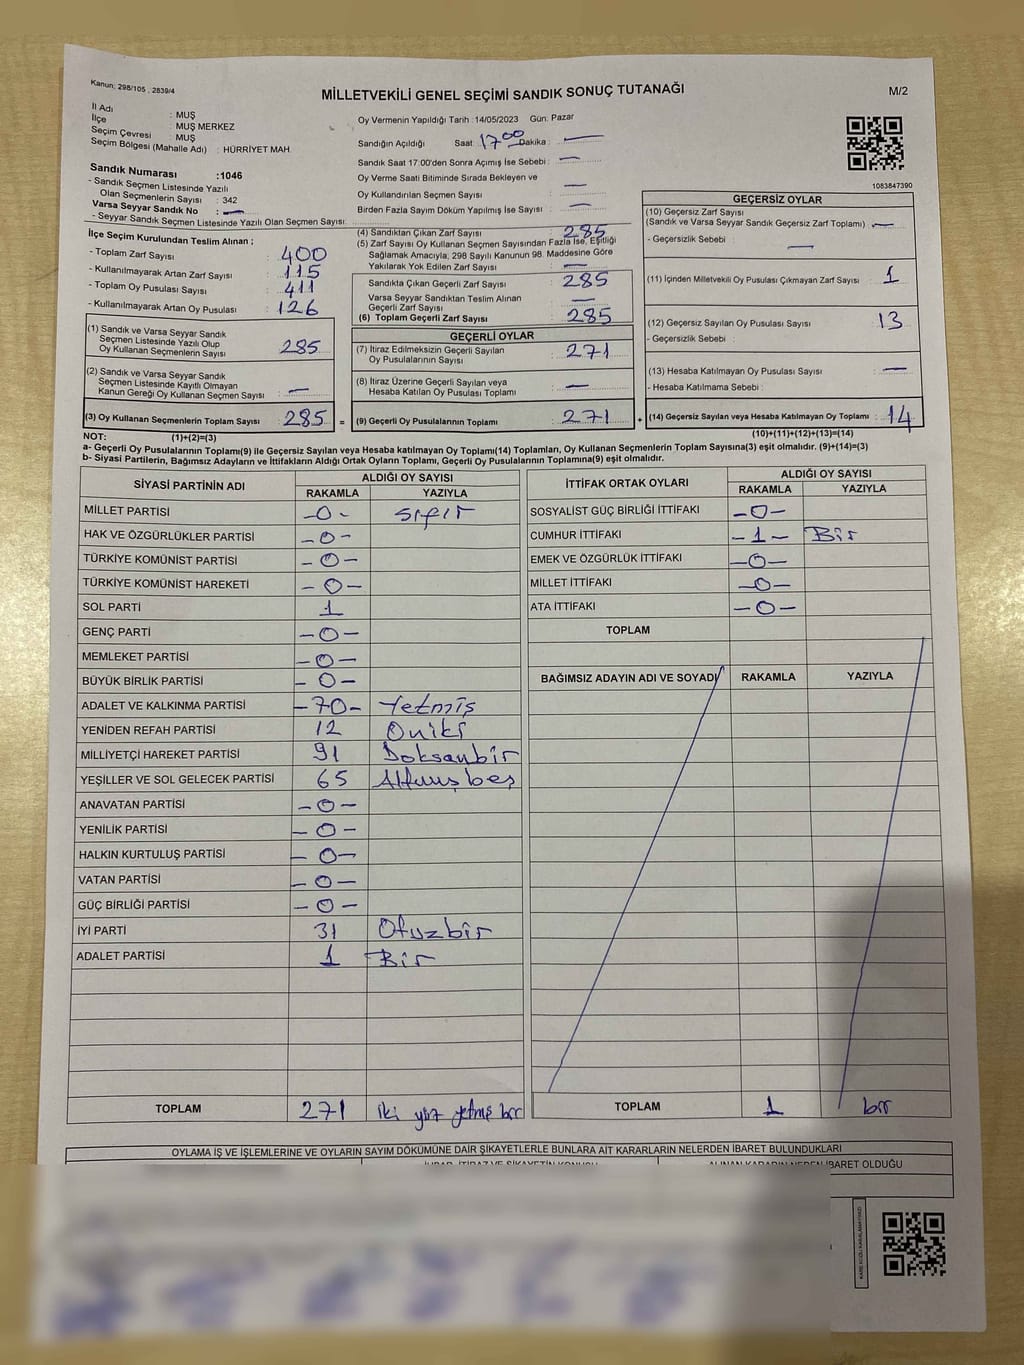 Kanun: 298/105 , 2839/4
MİLLETVEKİLİ GENEL SEÇİMİ SANDIK SONUÇ TUTANAĞI
M/2
İl Adı : MUŞ
İlçe : MUŞ MERKEZ
Seçim Çevresi : MUŞ
Seçim Bölgesi (Mahalle Adı) : HÜRRİYET MAH.
Oy Vermenin Yapıldığı Tarih : 14/05/2023 Gün: Pazar
Sandığın Açıldığı Saat 17 00 Dakika : —
Sandık Saat 17:00'den Sonra Açımış İse Sebebi : —
Oy Verme Saati Bitiminde Sırada Bekleyen ve
Oy Kullandırılan Seçmen Sayısı : —
Birden Fazla Sayım Döküm Yapılmış İse Sayısı : —
1083847390
Sandık Numarası :1046
- Sandık Seçmen Listesinde Yazılı
Olan Seçmenlerin Sayısı : 342
Varsa Seyyar Sandık No : —
- Seyyar Sandık Seçmen Listesinde Yazılı Olan Seçmen Sayısı:
İlçe Seçim Kurulundan Teslim Alınan ;
- Toplam Zarf Sayısı : 400
- Kullanılmayarak Artan Zarf Sayısı : 115
- Toplam Oy Pusulası Sayısı : 411
- Kullanılmayarak Artan Oy Pusulası : 126
(1) Sandık ve Varsa Seyyar Sandık
Seçmen Listesinde Yazılı Olup
Oy Kullanan Seçmenlerin Sayısı : 285
(2) Sandık ve Varsa Seyyar Sandık
Seçmen Listesinde Kayıtlı Olmayan
Kanun Gereği Oy Kullanan Seçmen Sayısı : —
(3) Oy Kullanan Seçmenlerin Toplam Sayısı : 285 =
(4) Sandıktan Çıkan Zarf Sayısı : 285
(5) Zarf Sayısı Oy Kullanan Seçmen Sayısından Fazla İse, Eşitliği
Sağlamak Amacıyla, 298 Sayılı Kanunun 98. Maddesine Göre
Yakılarak Yok Edilen Zarf Sayısı : —
Sandıkta Çıkan Geçerli Zarf Sayısı : 285
Varsa Seyyar Sandıktan Teslim Alınan
Geçerli Zarf Sayısı : —
(6) Toplam Geçerli Zarf Sayısı : 285
GEÇERLİ OYLAR
(7) İtiraz Edilmeksizin Geçerli Sayılan
Oy Pusulalarının Sayısı : 271
(8) İtiraz Üzerine Geçerli Sayılan veya
Hesaba Katılan Oy Pusulası Toplamı : —
(9) Geçerli Oy Pusulalarının Toplamı : 271 +
GEÇERSİZ OYLAR
(10) Geçersiz Zarf Sayısı
(Sandık ve Varsa Seyyar Sandık Geçersiz Zarf Toplamı) : —
- Geçersizlik Sebebi : —
(11) İçinden Milletvekili Oy Pusulası Çıkmayan Zarf Sayısı : 1
(12) Geçersiz Sayılan Oy Pusulası Sayısı : 13
- Geçersizlik Sebebi :
(13) Hesaba Katılmayan Oy Pusulası Sayısı : —
- Hesaba Katılmama Sebebi :
(14) Geçersiz Sayılan veya Hesaba Katılmayan Oy Toplamı : 14
NOT: (1)+(2)=(3)
(10)+(11)+(12)+(13)=(14)
a- Geçerli Oy Pusulalarının Toplamı(9) ile Geçersiz Sayılan veya Hesaba katılmayan Oy Toplamı(14) Toplamları, Oy Kullanan Seçmenlerin Toplam Sayısına(3) eşit olmalıdır. (9)+(14)=(3)
b- Siyasi Partilerin, Bağımsız Adayların ve İttifakların Aldığı Ortak Oyların Toplamı, Geçerli Oy Pusulalarının Toplamına(9) eşit olmalıdır.
SİYASİ PARTİNİN ADI ALDIĞI OY SAYISI
RAKAMLA YAZIYLA
MİLLET PARTİSİ -0- sıfır
HAK VE ÖZGÜRLÜKLER PARTİSİ -0-
TÜRKİYE KOMÜNİST PARTİSİ -0-
TÜRKİYE KOMÜNİST HAREKETİ -0-
SOL PARTİ 1
GENÇ PARTİ -0-
MEMLEKET PARTİSİ -0-
BÜYÜK BİRLİK PARTİSİ -0-
ADALET VE KALKINMA PARTİSİ -70- Yetmiş
YENİDEN REFAH PARTİSİ 12 Oniki
MİLLİYETÇİ HAREKET PARTİSİ 91 Doksanbir
YEŞİLLER VE SOL GELECEK PARTİSİ 65 Altmışbeş
ANAVATAN PARTİSİ -0-
YENİLİK PARTİSİ -0-
HALKIN KURTULUŞ PARTİSİ -0-
VATAN PARTİSİ -0-
GÜÇ BİRLİĞİ PARTİSİ -0-
İYİ PARTİ 31 Otuzbir
ADALET PARTİSİ 1 Bir
TOPLAM 271 iki yüz yetmiş bir
İTTİFAK ORTAK OYLARI ALDIĞI OY SAYISI
RAKAMLA YAZIYLA
SOSYALİST GÜÇ BİRLİĞİ İTTİFAKI -0-
CUMHUR İTTİFAKI -1- Bir
EMEK VE ÖZGÜRLÜK İTTİFAKI -0-
MİLLET İTTİFAKI -0-
ATA İTTİFAKI -0-
TOPLAM
BAĞIMSIZ ADAYIN ADI VE SOYADI RAKAMLA YAZIYLA
TOPLAM 1 bir
OYLAMA İŞ VE İŞLEMLERİNE VE OYLARIN SAYIM DÖKÜMÜNE DAİR ŞİKAYETLERLE BUNLARA AİT KARARLARIN NELERDEN İBARET BULUNDUKLARI
İHBAR, İTİRAZ VE ŞİKAYETİN KONUSU ALINAN KARARIN NEDEN İBARET OLDUĞU